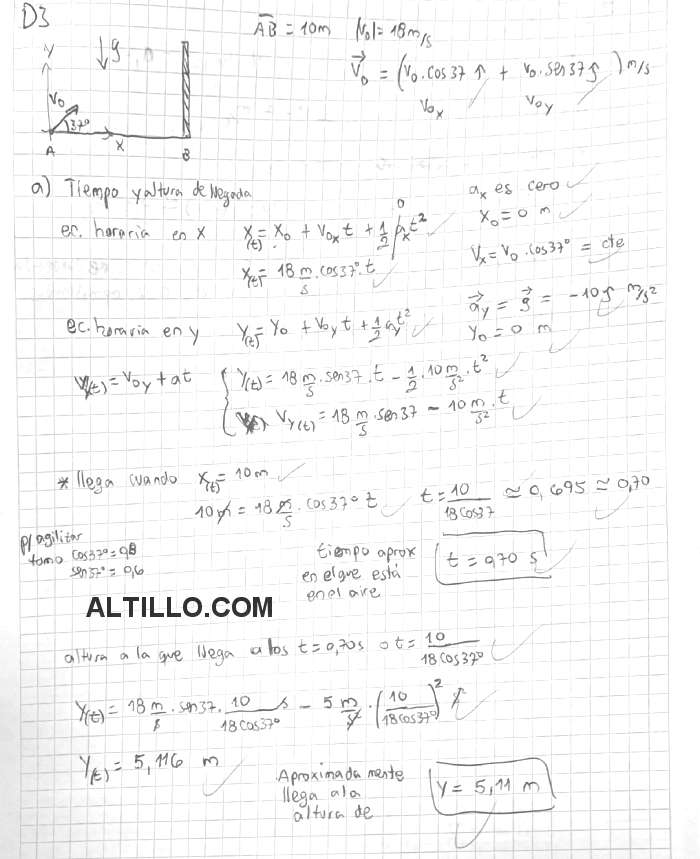 D3
AB = 10m |V0| = 18 m/s
V0 = (V0.cos37 î + V0.sen37 ĵ) m/s
V0x V0y
y g
V0
37°
A x B
a) Tiempo y altura de llegada
ax es cero
X0 = 0 m
ec. horaria en x X(t) = X0 + V0x t + 1/2 ax t² 0
Vx = V0 . cos37° = cte
X(t) = 18 m/s . cos37° . t
ay = g = -10 ĵ m/s²
ec. horaria en y Y(t) = Y0 + V0y t + 1/2 ay t²
Y0 = 0 m
Vy(t) = V0y + at
Y(t) = 18 m/s . sen37 . t - 1/2 . 10 m/s² . t²
Vy(t) = 18 m/s . sen37 - 10 m/s² . t
* llega cuando X(t) = 10 m
10 m = 18 m/s . cos37° t t = 10/18cos37 ≃ 0,695 ≃ 0,70
p/ agilitar
tomo cos37° = 0,8
sen37° = 0,6
tiempo aprox
en el que está
en el aire
t = 0,70 s
ALTILLO.COM
altura a la que llega a los t = 0,70s o t = 10/18cos37°
Y(t) = 18 m/s . sen37 . 10/18cos37° s - 5 m/s² . (10/18cos37°)² s²
Y(t) = 5,116 m
Aproximadamente
llega a la
altura de
Y = 5,11 m